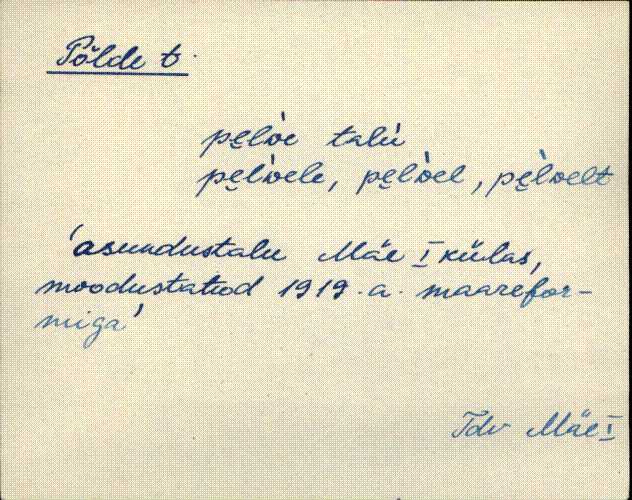 Põlde t.
pe̮lde talu
pe̮ldele, pe̮ldel, pe̮ldelt
'asundustalu Mäe I külas,
moodustatud 1919. a. maarefor-
miga'
Tdv Mäe I